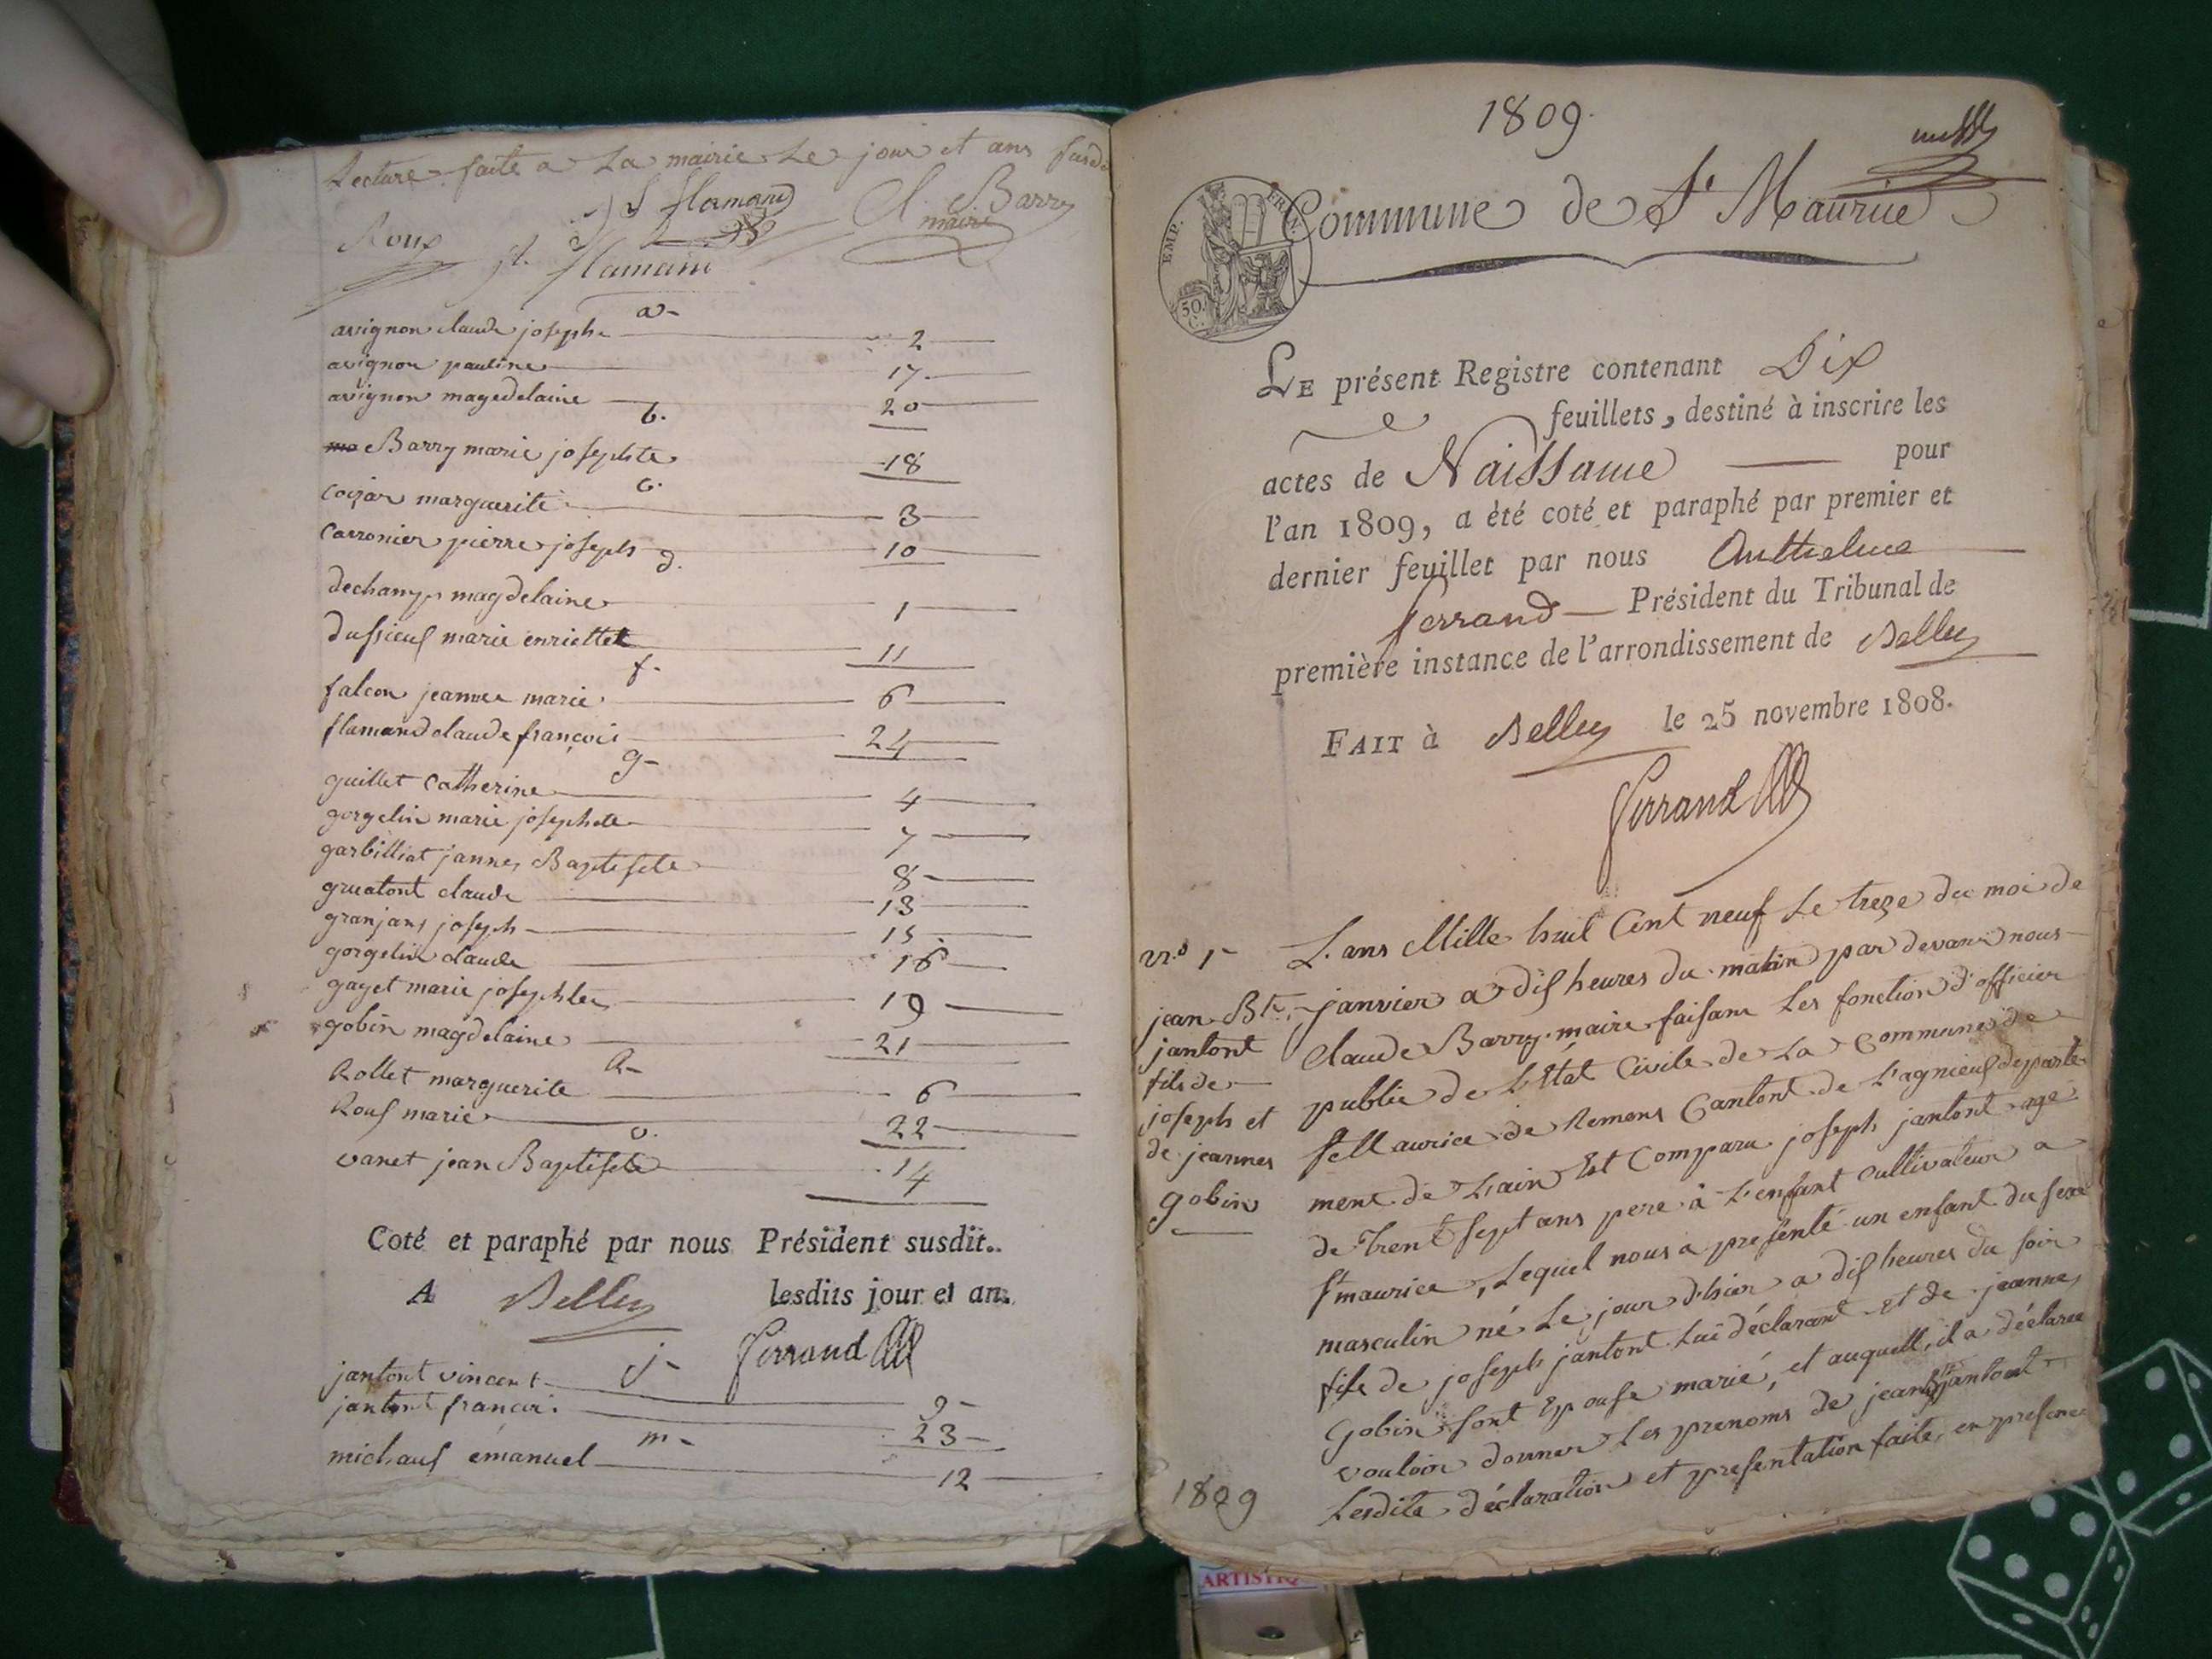 Lecture faite a La mairie Le jour et ans susd
Roux J flamand Cl. Barry
maire
jh. flamand
a-
avignon claude joseph 2
avignon pauline 17.
avignon magedelaine 20
b.
Barry marie josephte 18
c.
cozar marguerite 3
carronier pierre joseph 10
d.
dechamp magdelaine 1
dussieuf marie enriette 11
f-
falcon jeanne marie 6
flamand claude françois 24
g-
guillet catherine 4
gorgelin marie josephete 7
garbilliat jannes Baptiste 8
gruatont claude 13
granjans joseph 15
gorgelin claude 16
gayet marie josephte 19
gobin magdelaine 21
R-
Rollet marguerite 6
Rouf marie 22
v.
vanet jean Baptiste 14
Coté et paraphé par nous Président susdit.
A Belley lesdits jour et an.
Ferrand
j-
jantont vincent 9
jantont françoi 23
m-
michauf émanuel 12
1809.
Commune de St Maurice
EMP.
50.
C.
LE présent Registre contenant Dix
feuillets, destiné à inscrire les
actes de Naissance pour
l'an 1809, a été coté et paraphé par premier et
dernier feuillet par nous Anthelme
ferrand Président du Tribunal de
première instance de l'arrondissement de Belley
FAIT à Belley le 25 novembre 1808.
Ferrand
n.o 1
jean Bte
jantont
fils de
joseph et
de jeannes
gobin
L'ans Mille huit Cent neuf Le treze du moi de
janvier a dis heures du matin par devant nous
claude Barry maire faisant Les fonction d'officier
publie de L'Etat Civile de La Commune de
st Maurice de Remens Cantont de L'agnieuf departe
ment de L'ain Est Comparu joseph jantont age
de Trent sept ans pere à L'enfant cultivateur a
st maurice, Lequel nous a presenté un enfant du sexe
masculin né Le jour d'hier a dis heures du soir
fils de joseph jantont Lui déclarant et de jeannes
Gobin sont Epouse marié, et auquell il a déclaree
vouloir donner Les prenoms de jean Bte jantont
Lesdite déclaration et presentation faite, en presence
1809
ARTISTIQ